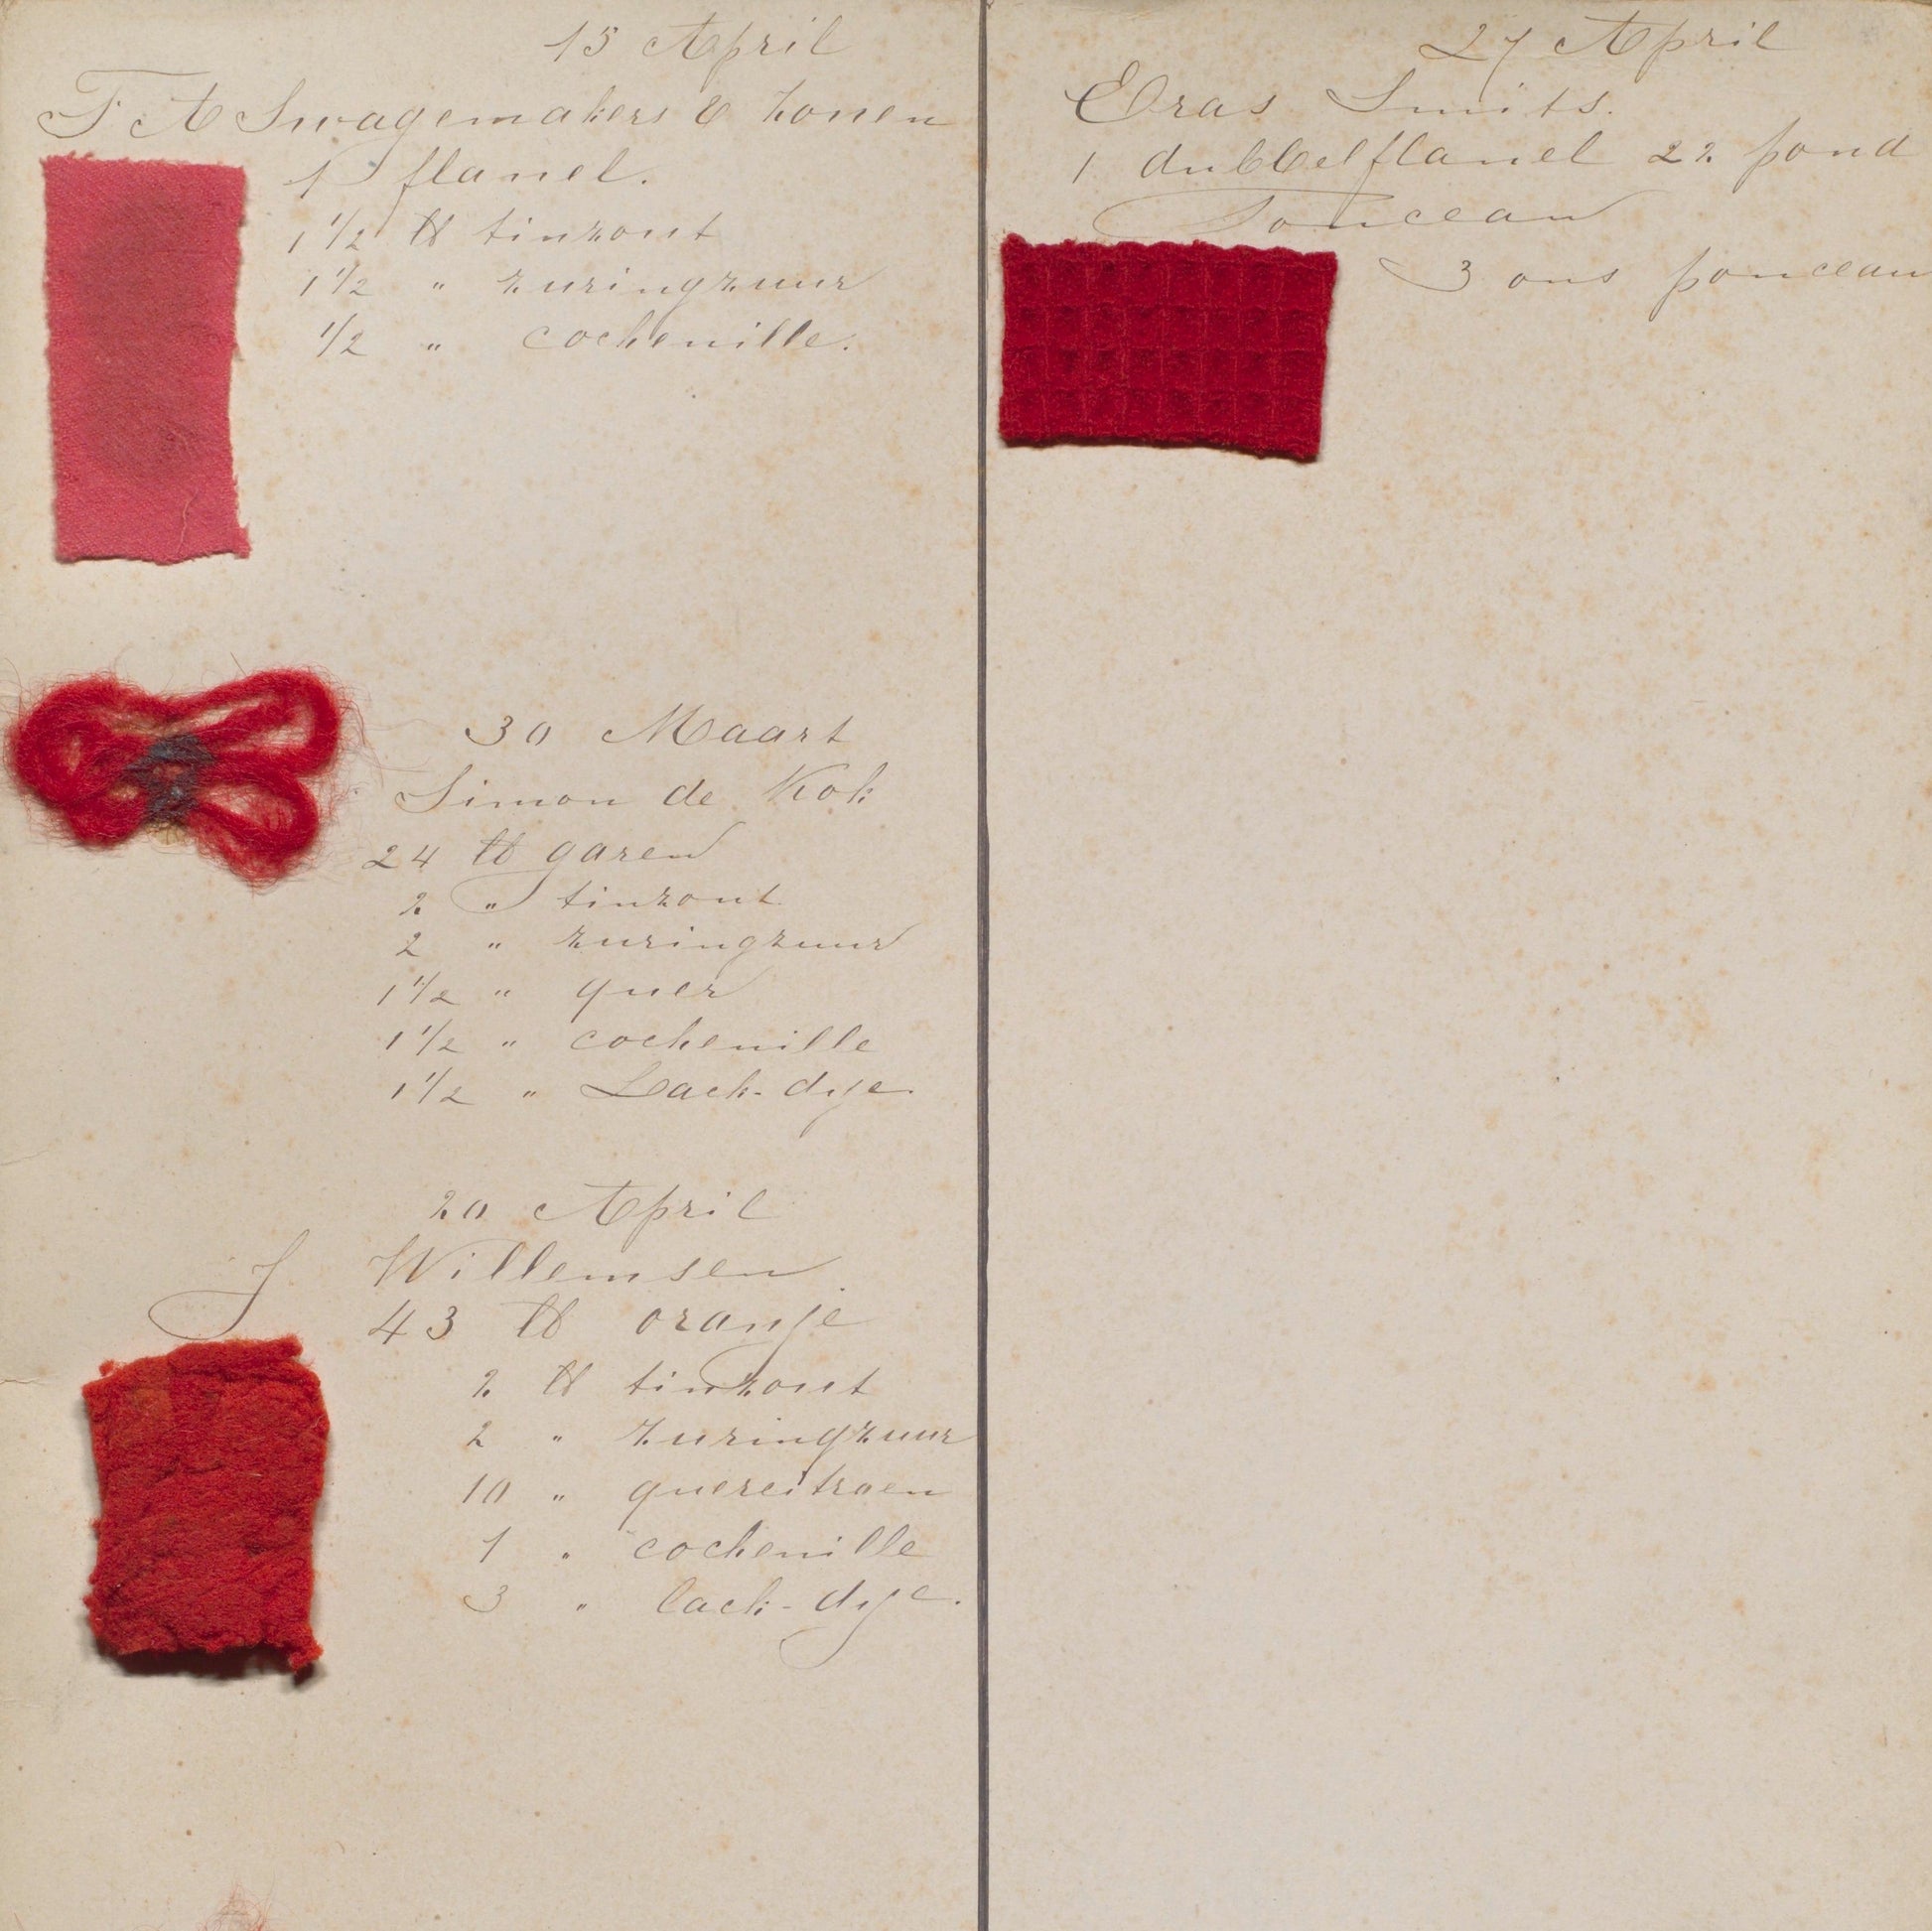 15 April
F A Swagemakers & Zonen
1 flanel.
1 1/2 ℔ tinzout
1 1/2 " zuringzuur
1/2 " cochenille.
30 Maart
Simon de Kok
24 ℔ garen
2 " tinzout
2 " zuringzuur
1 1/2 " quer
1 1/2 " cochenille
1 1/2 " Lack-dye.
20 April
J Willemsen
43 ℔ oranje
2 ℔ tinzout
2 " zuringzuur
10 " quercitroen
1 " cochenille
3 " lack-dye.
27 April
Eras Smits.
1 dubbelflanel 22 pond
Ponceau
3 ons ponceau